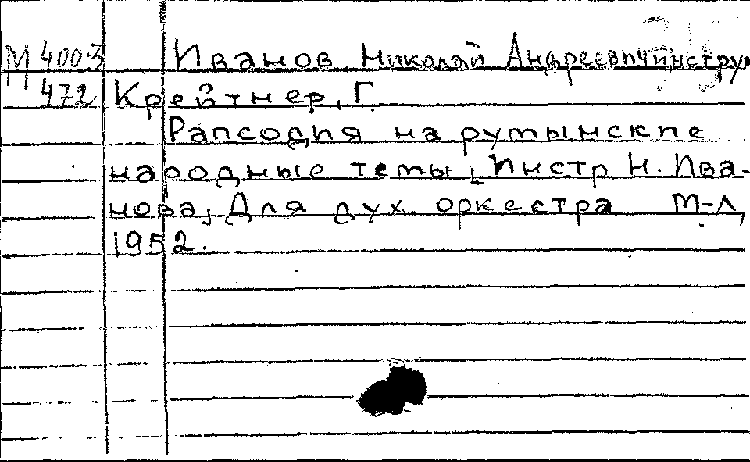 М 4003 Иванов, Николай Андреевич инстру
472 Крейтнер, Г.
Рапсодия на румынские
народные темы, Инстр Н. Ива-
нова, Для дух. оркестра М-Л,
1952.